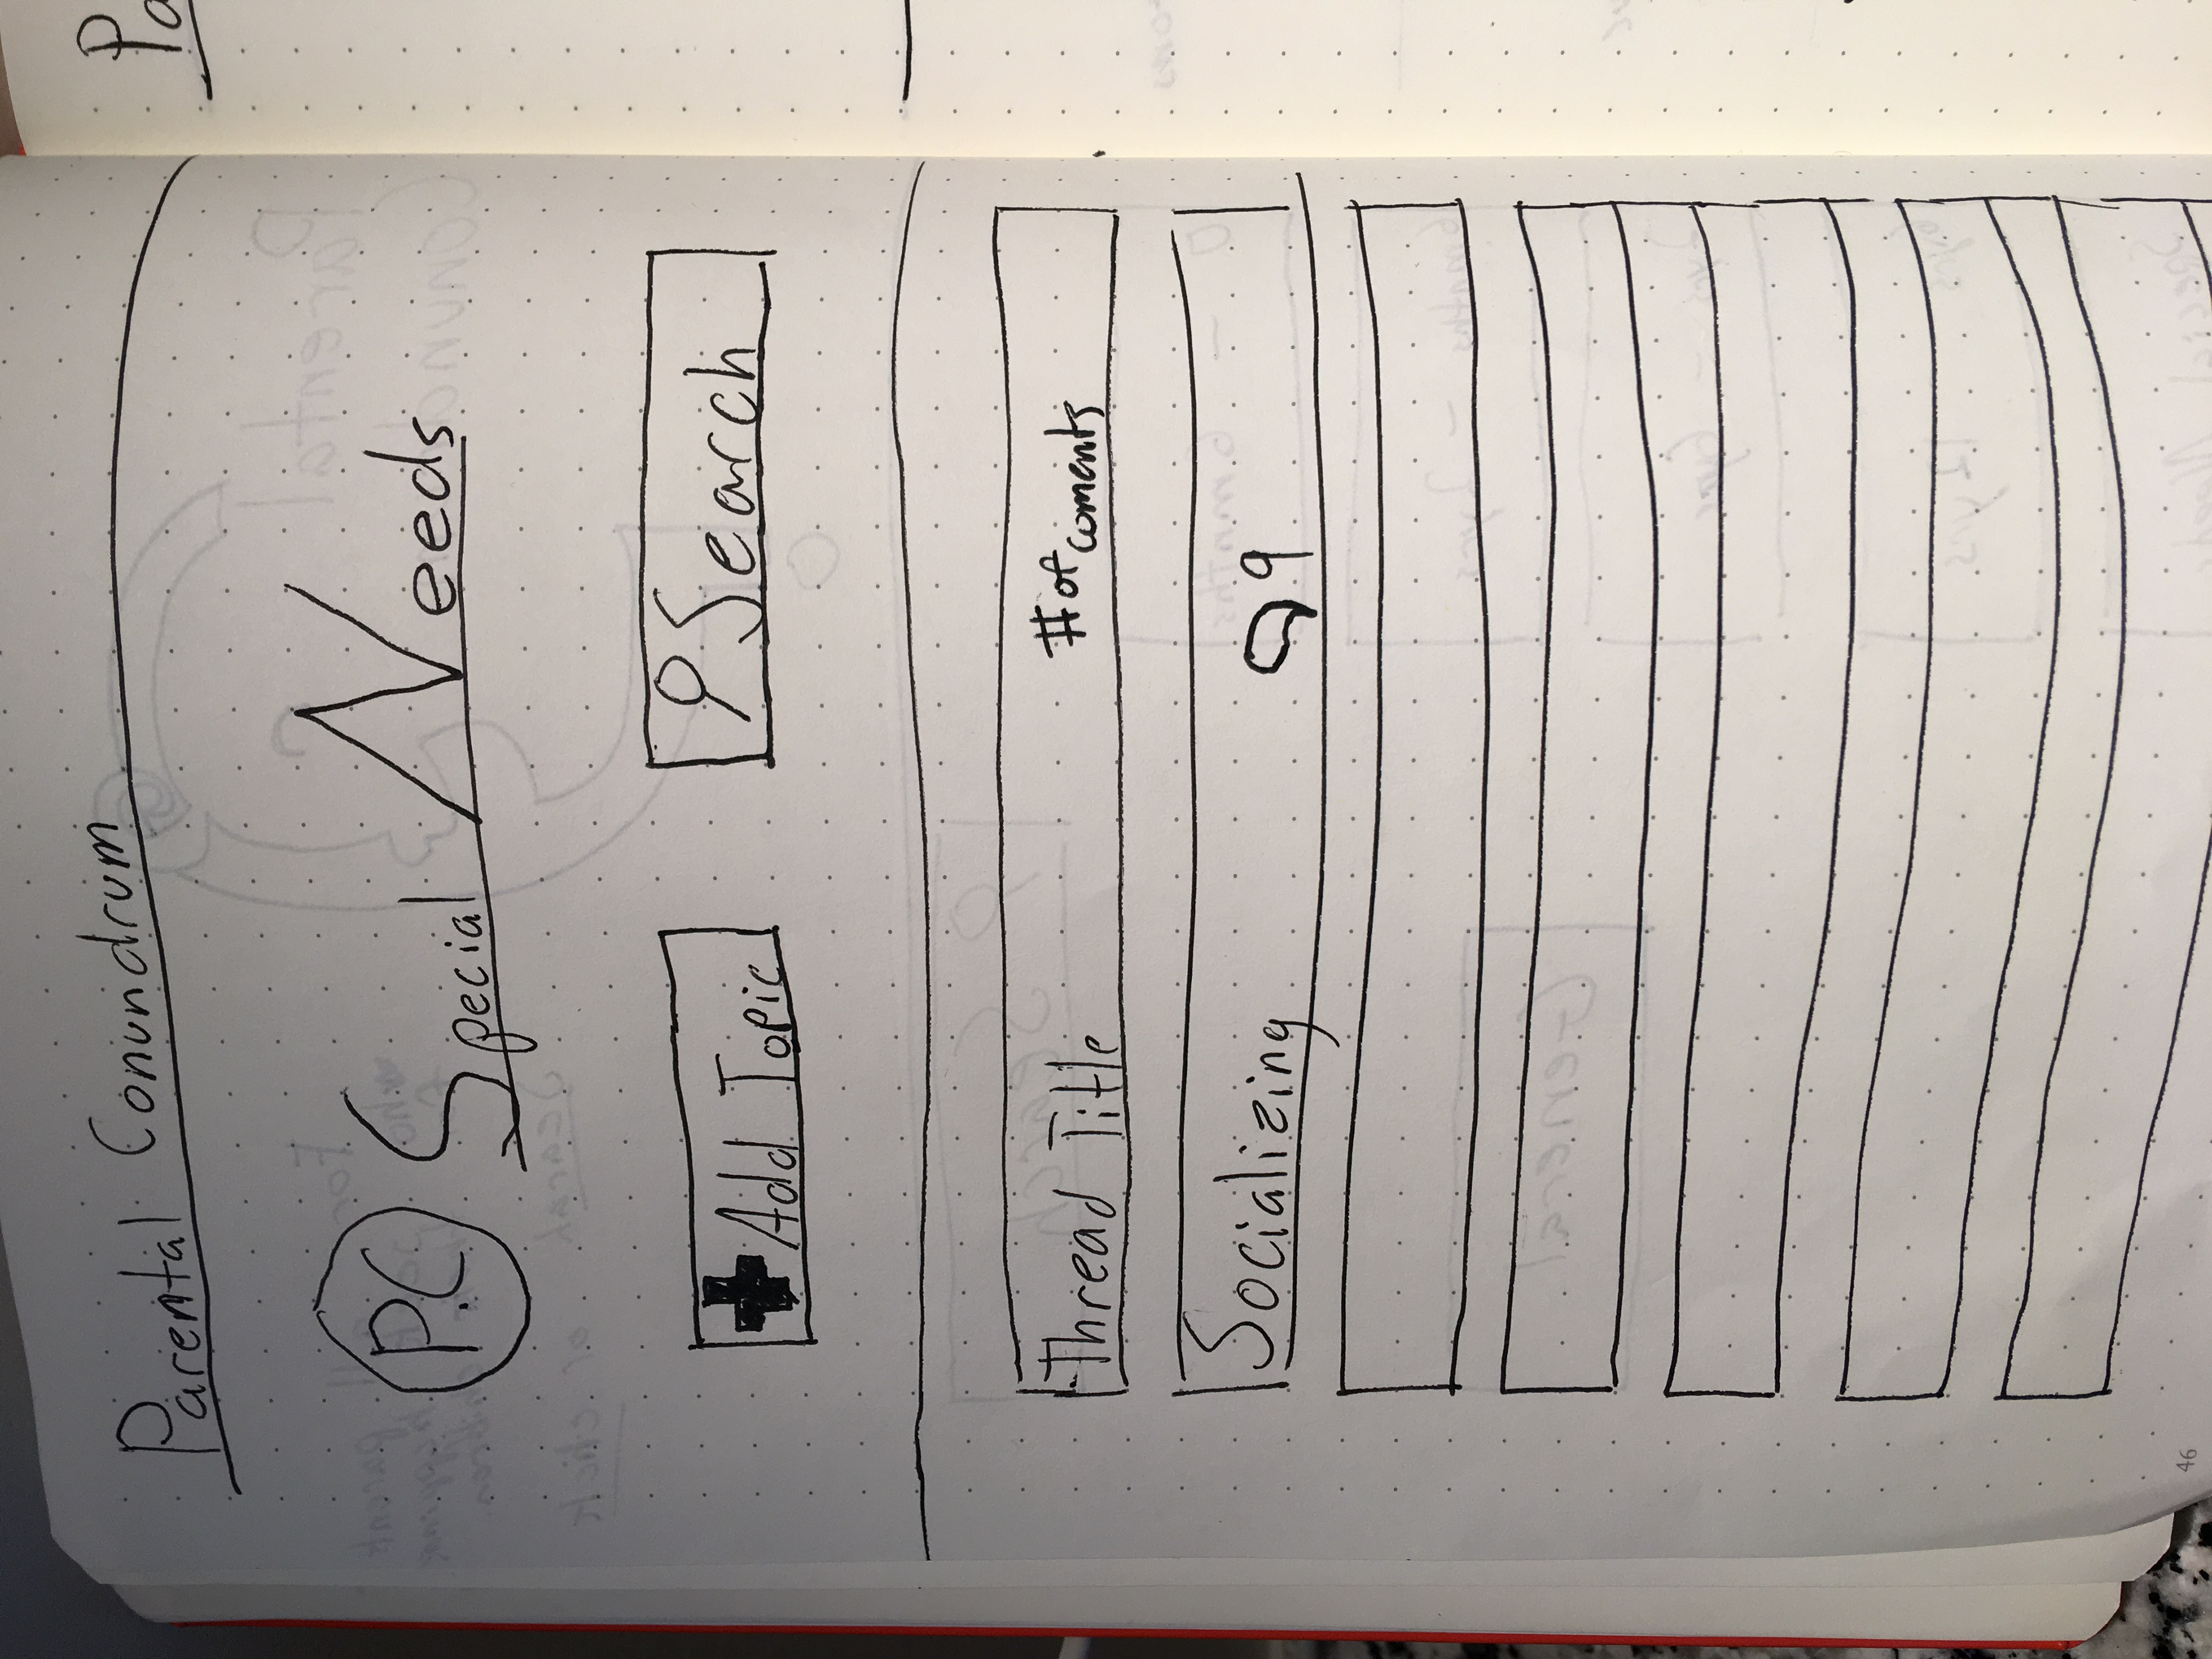 Parental Conundrum
Pa
P.C Special Needs
Add Topic
Search
Thread Title # of coments
Socializing 9
46